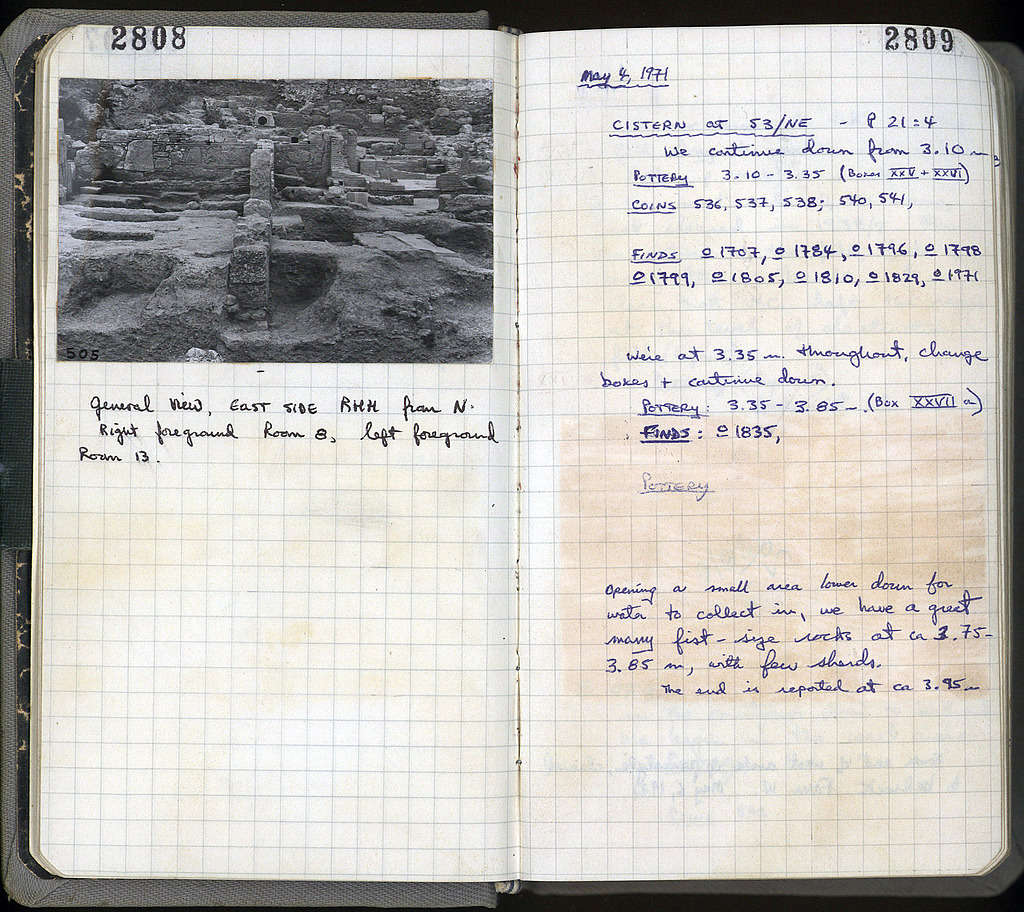 2808
505
General View, EAST SIDE RHH from N.
Right foreground Room 8, left foreground
Room 13.
2809
May 4, 1971
CISTERN at 53/NE - P 21:4
We continue down from 3.10 m
POTTERY 3.10 - 3.35 (Boxes XXV + XXVI)
COINS 536, 537, 538; 540, 541,
FINDS o 1707, o 1784, o 1796, o 1798
o 1799, o 1805, o 1810, o 1829, o 1971
We're at 3.35 m. throughout, change
boxes + continue down.
POTTERY: 3.35 - 3.85 m. (Box XXVII a)
FINDS: o 1835,
POTTERY
Opening a small area lower down for
water to collect in, we have a great
many fist-size rocks at ca 3.75-
3.85 m, with few sherds.
The end is reported at ca 3.95 m